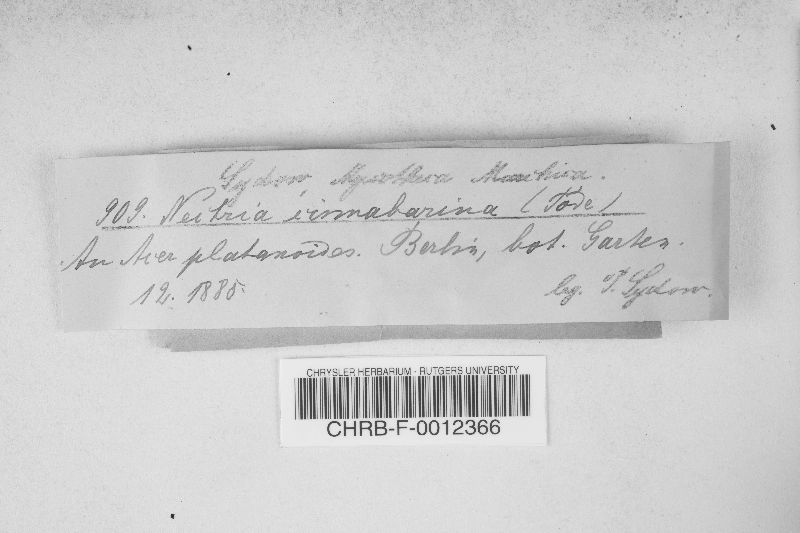 Sydow, Mycotheca Marchica.
909. Nectria cinnabarina (Tode)
An Acer platanoides. Berlin, bot. Garten.
12. 1885. leg. P. Sydow.
CHRYSLER HERBARIUM - RUTGERS UNIVERSITY
CHRB-F-0012366